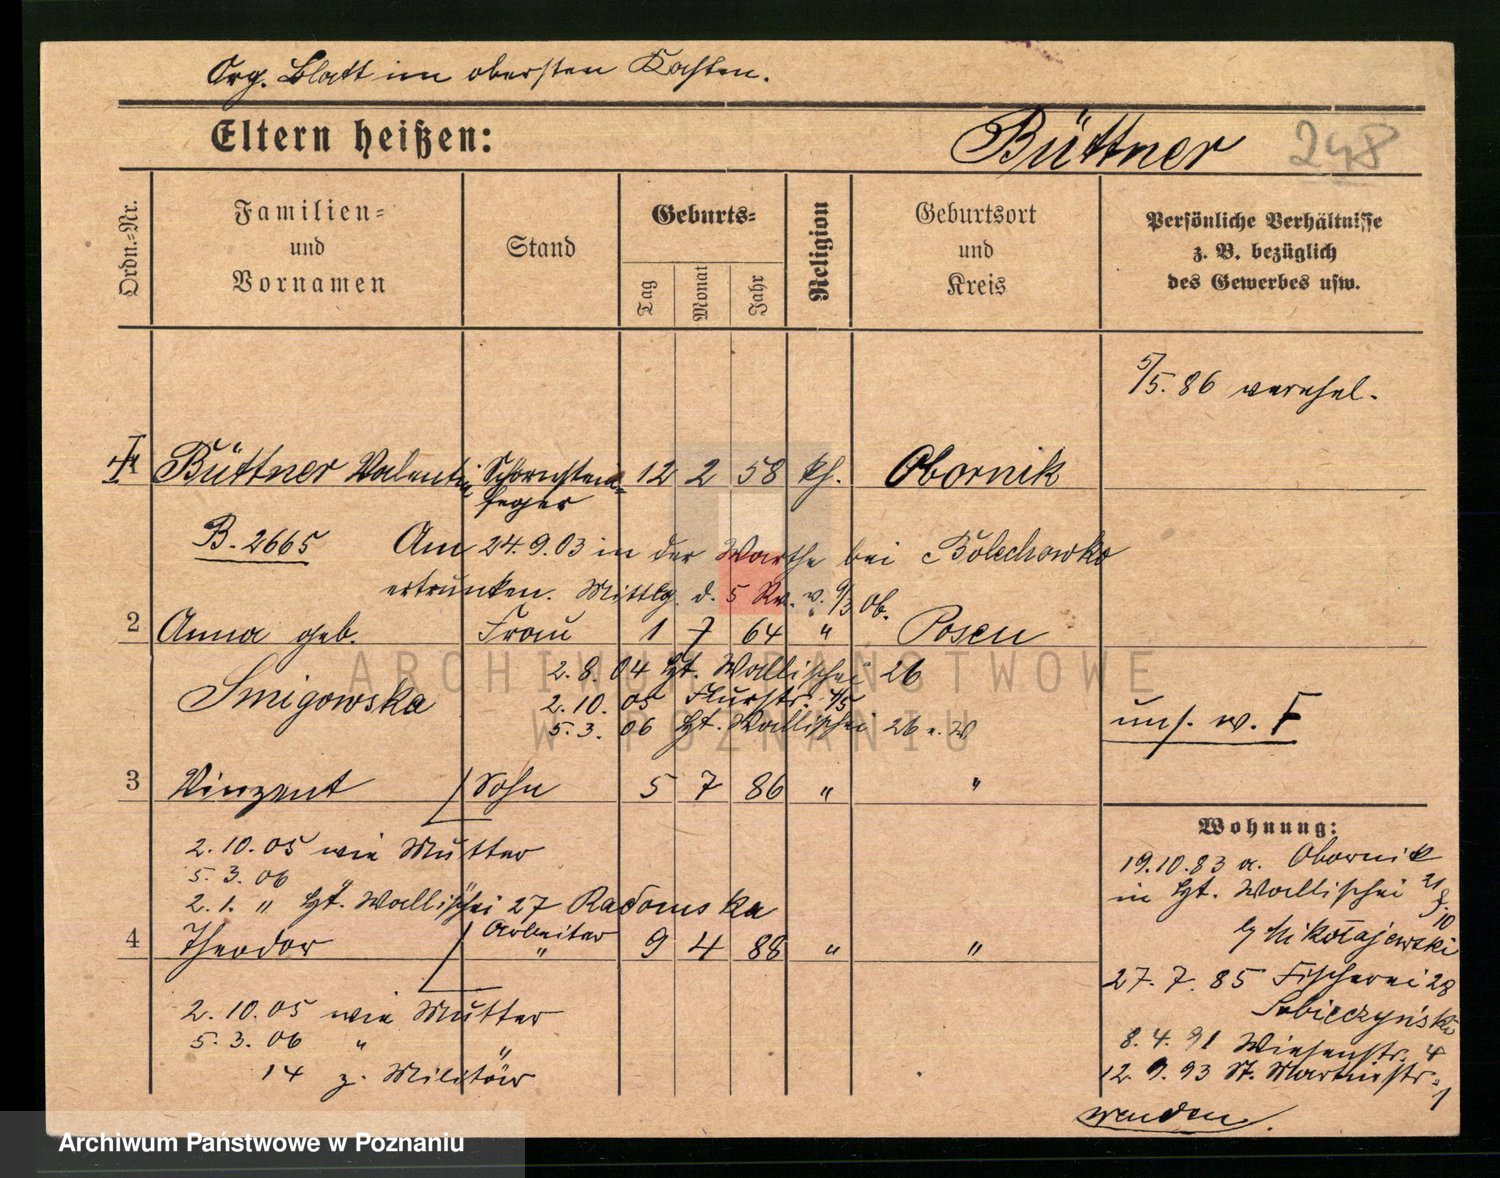 Org. Blatt im obersten Kasten.
Eltern heißen: Büttner 248
Ordn.-Nr.
Familien-
und
Vornamen
Stand
Geburts-
Tag
Monat
Jahr
Religion
Geburtsort
und
Kreis
Persönliche Verhältnisse
z. B. bezüglich
des Gewerbes usw.
5/5. 86 verehel.
1 Büttner Valentin Schornstein- 12 2 58 kh. Obornik
feger
B. 2665 Am 24.9.03 in der Warthe bei Bolechowko
ertrunken. Mittlg. d. 5 Rv. v. 9/3 06.
2 Anna geb. Frau 1 7 64 " Posen
2. 8. 04 Gt. Wallischei 26
Smigowska 2. 10. 05 Flurstr. 4/5
5. 3. 06 Gt. Wallischei 26 u. W
uns. w. F
3 Vinzent Sohn 5 7 86 " "
2. 10. 05 wie Mutter
5. 3. 06 "
2. 1. " Gt. Wallischei 27 Radomska
4 Theodor Arbeiter " 9 4 88 " "
2. 10. 05 wie Mutter
5. 3. 06 " "
14 z. Militär
Wohnung:
19.10.83 a. Obornik
in Gt. Wallischei 21
b/ Mikołajewski
27. 7. 85 Fischerei 28
Sobieczyński
8. 4. 91 Wiesenstr. 4
12. 9. 93 St. Martinstr. 1
wenden.
ARCHIWUM PAŃSTWOWE
W POZNANIU
Archiwum Państwowe w Poznaniu